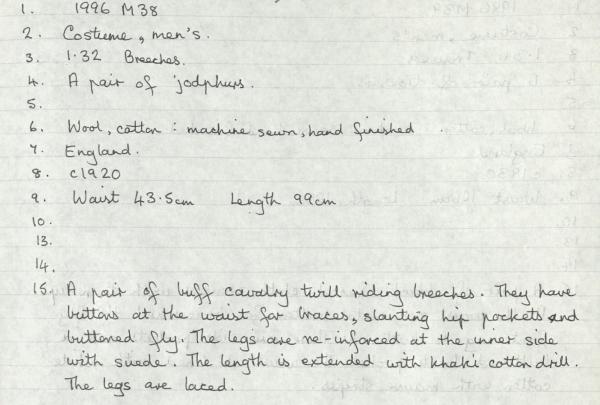 1. 1996 M38
2. Costume, men's.
3. 1.32 Breeches.
4. A pair of jodphurs.
5.
6. Wool, cotton : machine sewn, hand finished.
7. England.
8. c1920
9. Waist 43.5cm Length 99cm
10.
13.
14.
15. A pair of buff cavalry twill riding breeches. They have
buttons at the waist for braces, slanting hip pockets and
buttoned fly. The legs are re-inforced at the inner side
with suede. The length is extended with khaki cotton drill.
The legs are laced.